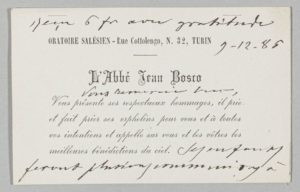 reçu 6 fr avec gratitude
ORATOIRE SALÉSIEN - Rue Cottolengo, N. 32, TURIN
9-12-86
L'Abbé Jean Bosco
Vous remercie bien,
Vous présente ses respectueux hommages, il prie
et fait prier ses orphelins pour vous et à toutes
vos intentions et appelle sur vous et les vôtres les
meilleures bénédictions du ciel. Ses enfants
feront plusieurs communions à